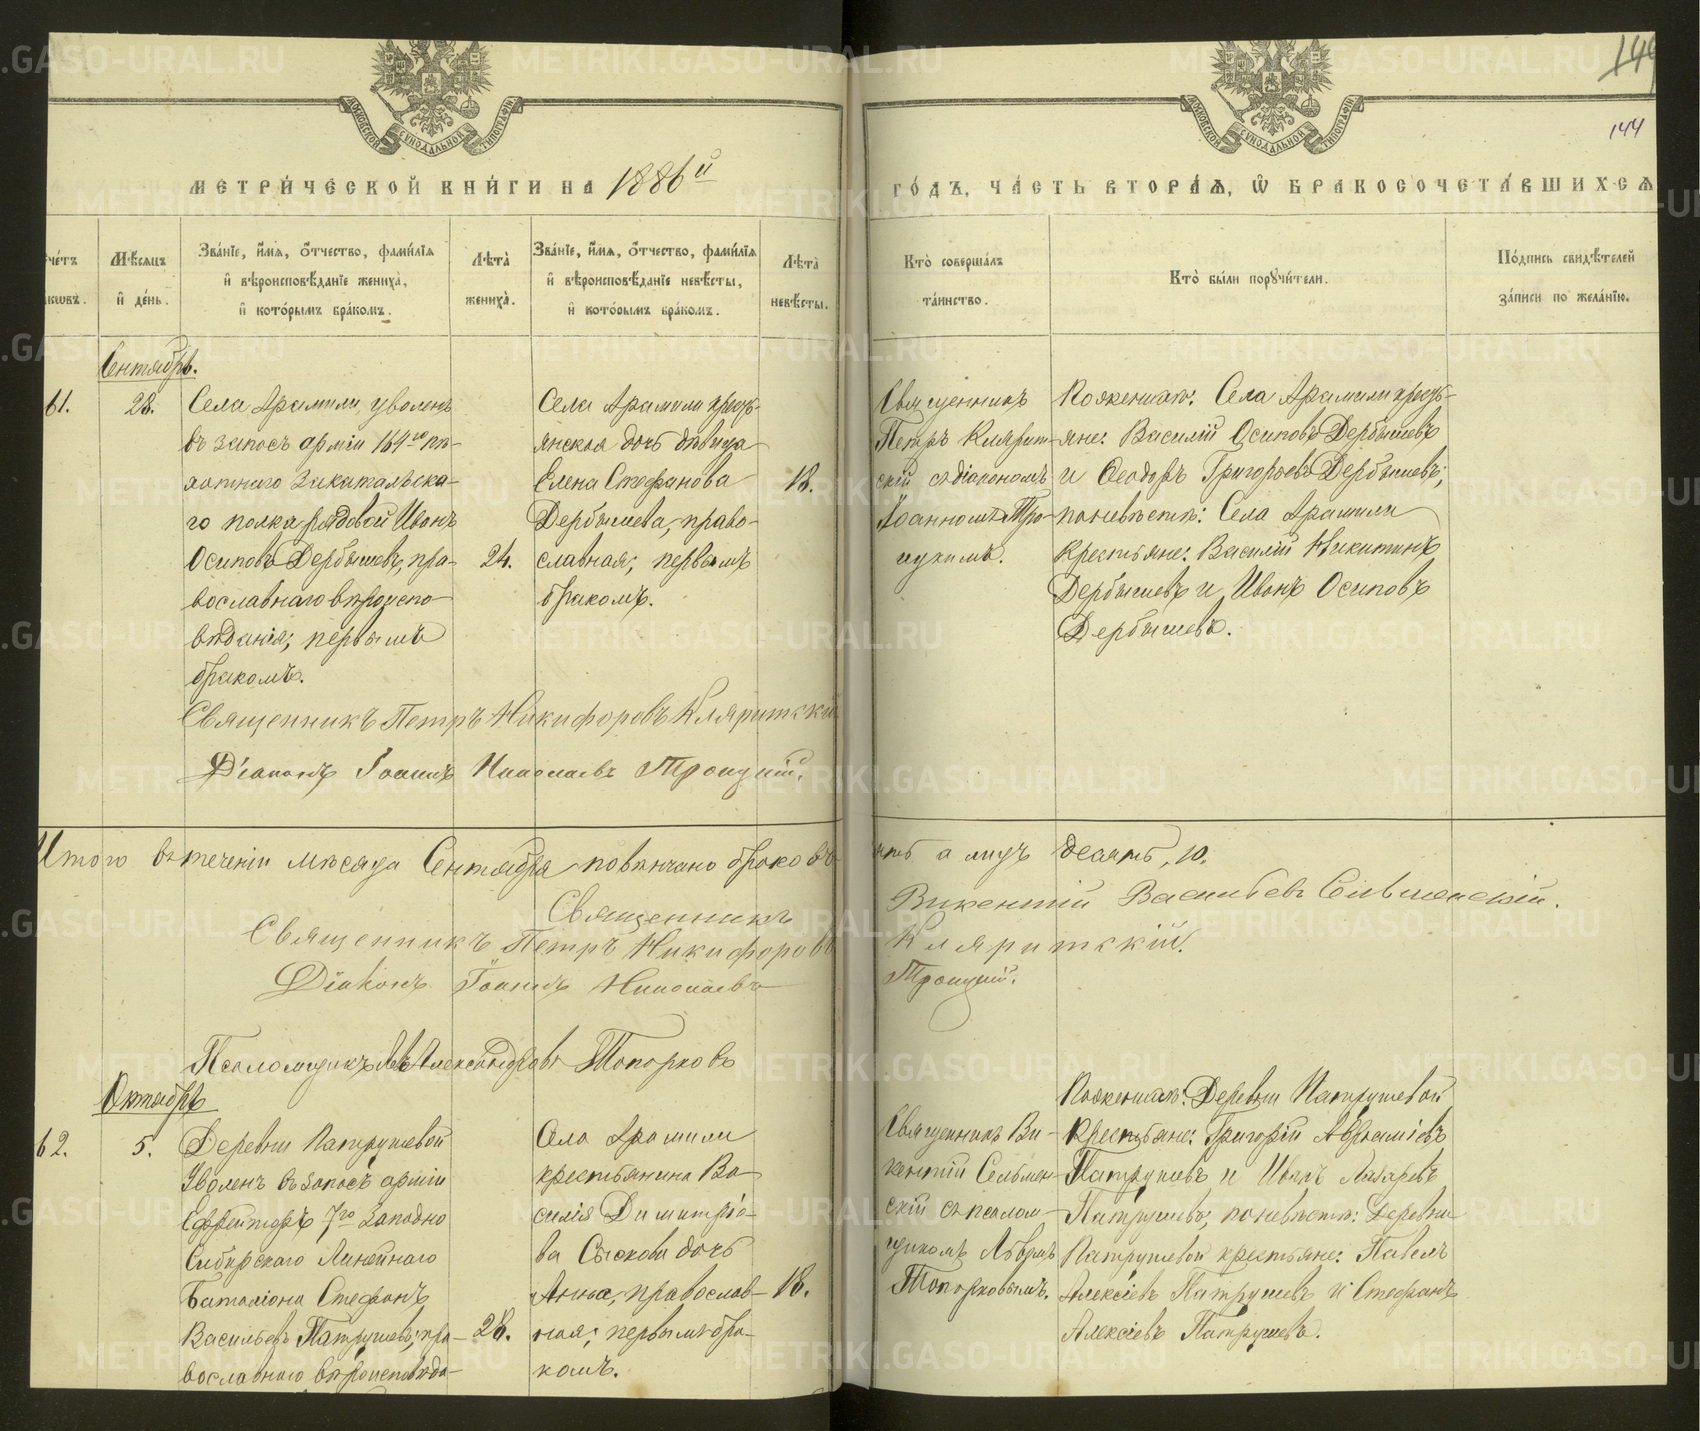 144
144
МЕТРИ́ЧЕСКОЙ КНИ́ГИ НА 1886й
ГО́ДЪ, ЧА́СТЬ ВТОРА́Я, Ѿ БРАКОСОЧЕТА́ВШИХСЯ
Мѣ́сяцъ и҆ де́нь.
Зва́нїе, и҆́мѧ, ѻ҆́тчество, фами́лїѧ
и҆ вѣроисповѣ́данїе жениха̀,
и҆ кото́рымъ бра́комъ.
Лѣ́та̀ жениха̀.
Зва́нїе, и҆́мѧ, ѻ҆́тчество, фами́лїѧ
и҆ вѣроисповѣ́данїе невѣ́сты,
и҆ кото́рымъ бра́комъ.
Лѣ́та̀ невѣ́сты.
Кто̀ соверша́лъ та́инство.
Кто̀ бы́ли пору҆чи́тели.
По́дпись свидѣ́телей
за́писи по жела́нїю.
Сентябрь.
61.
28.
Села Арамили, уволенъ
въ запасъ арміи 164го пѣ-
хотнаго Закатальска-
го полка рядовой Иванъ
Осиповъ Дербышевъ, пра-
вославнаго вѣроиспо-
вѣданія; первымъ
бракомъ.
24.
Села Арамили кресть-
янская дочь девица
Елена Стефанова
Дербышева, право-
славная; первымъ
бракомъ.
18.
Священникъ
Петръ Кляритс-
скій съ діакономъ
Іоанномъ Тро-
ицкимъ.
По женихѣ: Села Арамили кресть-
яне: Василій Осиповъ Дербышевъ
и Ѳеодоръ Григорьевъ Дербышевъ;
по невѣстѣ: Села Арамили
крестьяне: Василій Никитинъ
Дербышевъ и Иванъ Осиповъ
Дербышевъ.
Священникъ Петръ Никифоровъ Кляритскій
Діаконъ Іоаннъ Николаевъ Троицкій.
Итого въ теченіи мѣсяца Сентября повѣнчано браковъ пять а лицъ десять, 10.
Священникъ Викентій Васильевъ Сельменскій.
Священникъ Петръ Никифоровъ Кляритскій.
Діаконъ Іоаннъ Николаевъ Троицкій.
Псаломщикъ Левъ Александровъ Топорковъ
Октябрь
62.
5.
Деревни Патрушевой
Уволенъ въ запасъ арміи
Ефрейторъ 7го Западно
Сибирскаго Линейнаго
Баталіона Стефанъ
Васильевъ Патрушевъ; пра-
вославнаго вѣроисповѣда-
28.
Села Арамили
крестьянина Ва-
силія Димитріе-
ва Сыскова дочь
Анна, православ-
ная; первымъ бра-
комъ.
18.
Священникъ Ви-
кентій Сельмен-
скій съ псалом-
щикомъ Львомъ
Топорковымъ.
По женихѣ: Деревни Патрушевой
Крестьяне: Григорій Авраміевъ
Патрушевъ и Иванъ Лазаревъ
Патрушевъ; по невѣстѣ: Деревни
Патрушевой крестьяне: Павелъ
Алексіевъ Патрушевъ и Стефанъ
Алексіевъ Патрушевъ.
METRIKI.GASO-URAL.RU